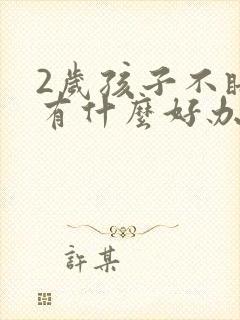 2歲孩子不
有什麼好办
許某